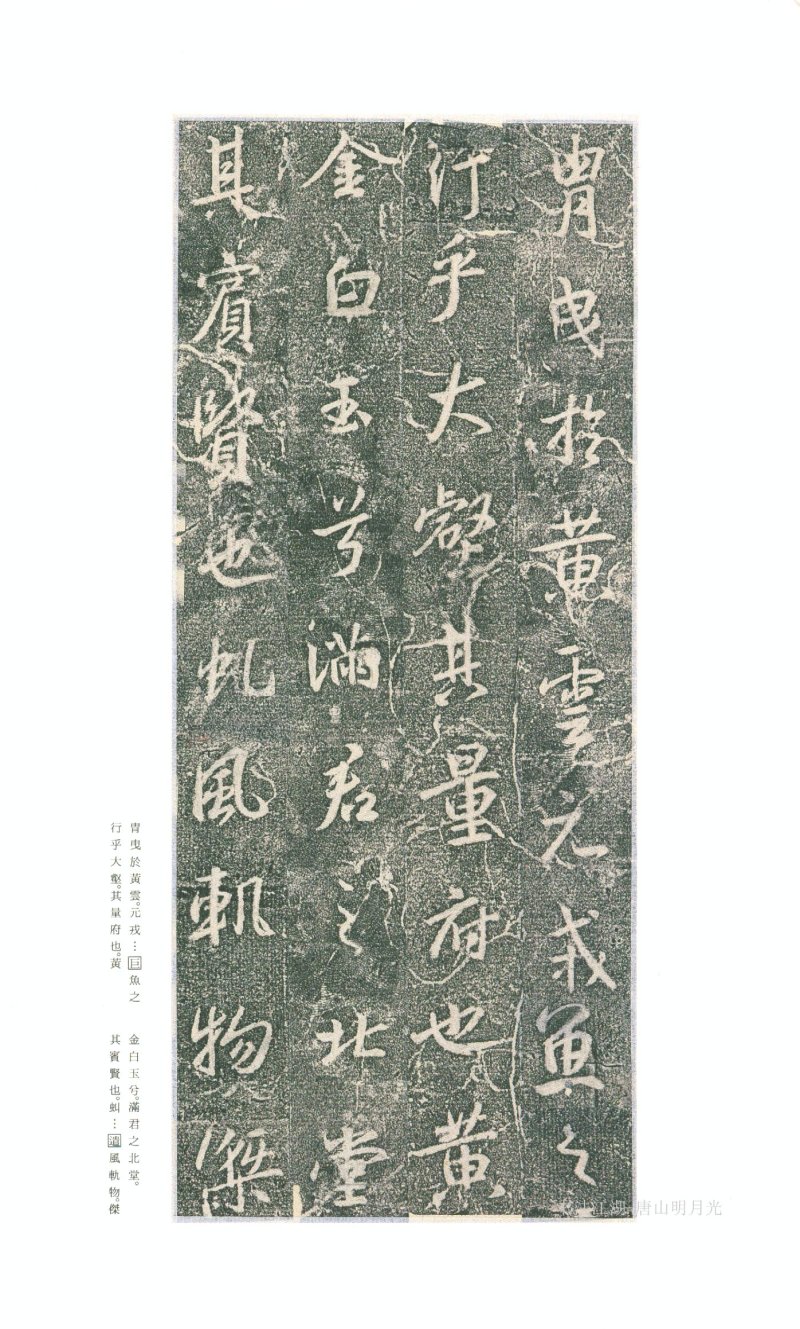 胄曳於黄雲元戎魚之
行乎大壑其量府也黄
金白玉兮滿君之北堂
其賓賢也虬風軌物傑
胄曳於黃雲。元戎…巨魚之
行乎大壑。其量府也。黃
金白玉兮。滿君之北堂。
其賓賢也。虯…遺風軌物。傑
江湖 唐山明月光